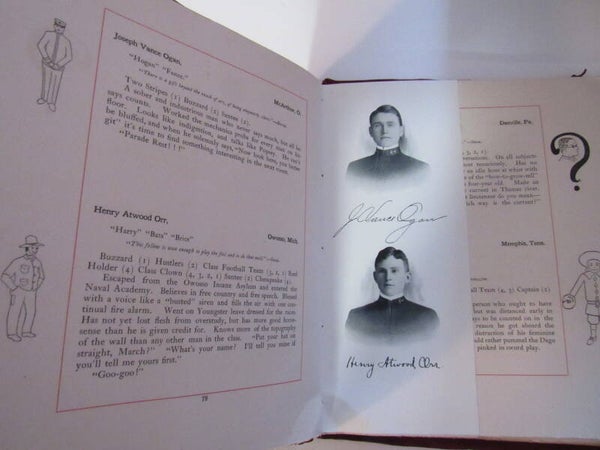 Joseph Vance Ogan,
McArthur, O.
"Hogan" "Faster."
"There is a gift beyond the reach of art, of being eloquently silent."—Bovee.
Two Stripes (1) Buzzard (2) Sextet (2).
A sober and industrious man who never says much, but all he
says counts. Worked the mechanics probs for every man on his
floor. Looks like indigestion, and talks like Popery. He can't
be bluffed, and when he solemnly says, "Now look here, you longe
git" it's time to find something interesting in the next room.
"Parade Rest!!!"
Henry Atwood Orr,
Owosso, Mich.
"Harry" "Bats" "Brice"
"This fellow is wise enough to play the fool and to do that well."—Shak.
Buzzard (1) Hustlers (2) Class Football Team (3, 1) Bard
Holder (4) Class Clown (4, 3, 2, 1) Sextet (2) Cheapskate (4)
Escaped from the Owosso Insane Asylum and entered the
Naval Academy. Believes in free country and free speech. Blessed
with a voice like a "busted" siren and fills the air with one con-
tinual fire alarm. Went on Youngster leave dressed for the race.
Has not yet lost flesh from overstudy, but has more good horse-
sense than he is given credit for. Knows more of the topography
of the wall than any other man in the class. "Put your hat on
straight, March?" "What's your name? I'll tell you mine if
you'll tell me yours first."
"Goo-goo!"
79
J Vance Ogan
Henry Atwood Orr.
Danville, Pa.
3, 2, 1)
On all subjects
most tenaciously. Has no
an idle hour in whist with
of the "how-to-grow-tall"
four-year old. Made us
current in Thomas (seat,
lieutenant do you mean—
which way is the current?"
?
Memphis, Tenn.
Team (4, 3,) Captain (2)
person who ought to have
but was distanced early in
says to be counted on in the
reason he got aboard the
distraction of his feminine
would rather pummel the Dago
pinked in sword play.